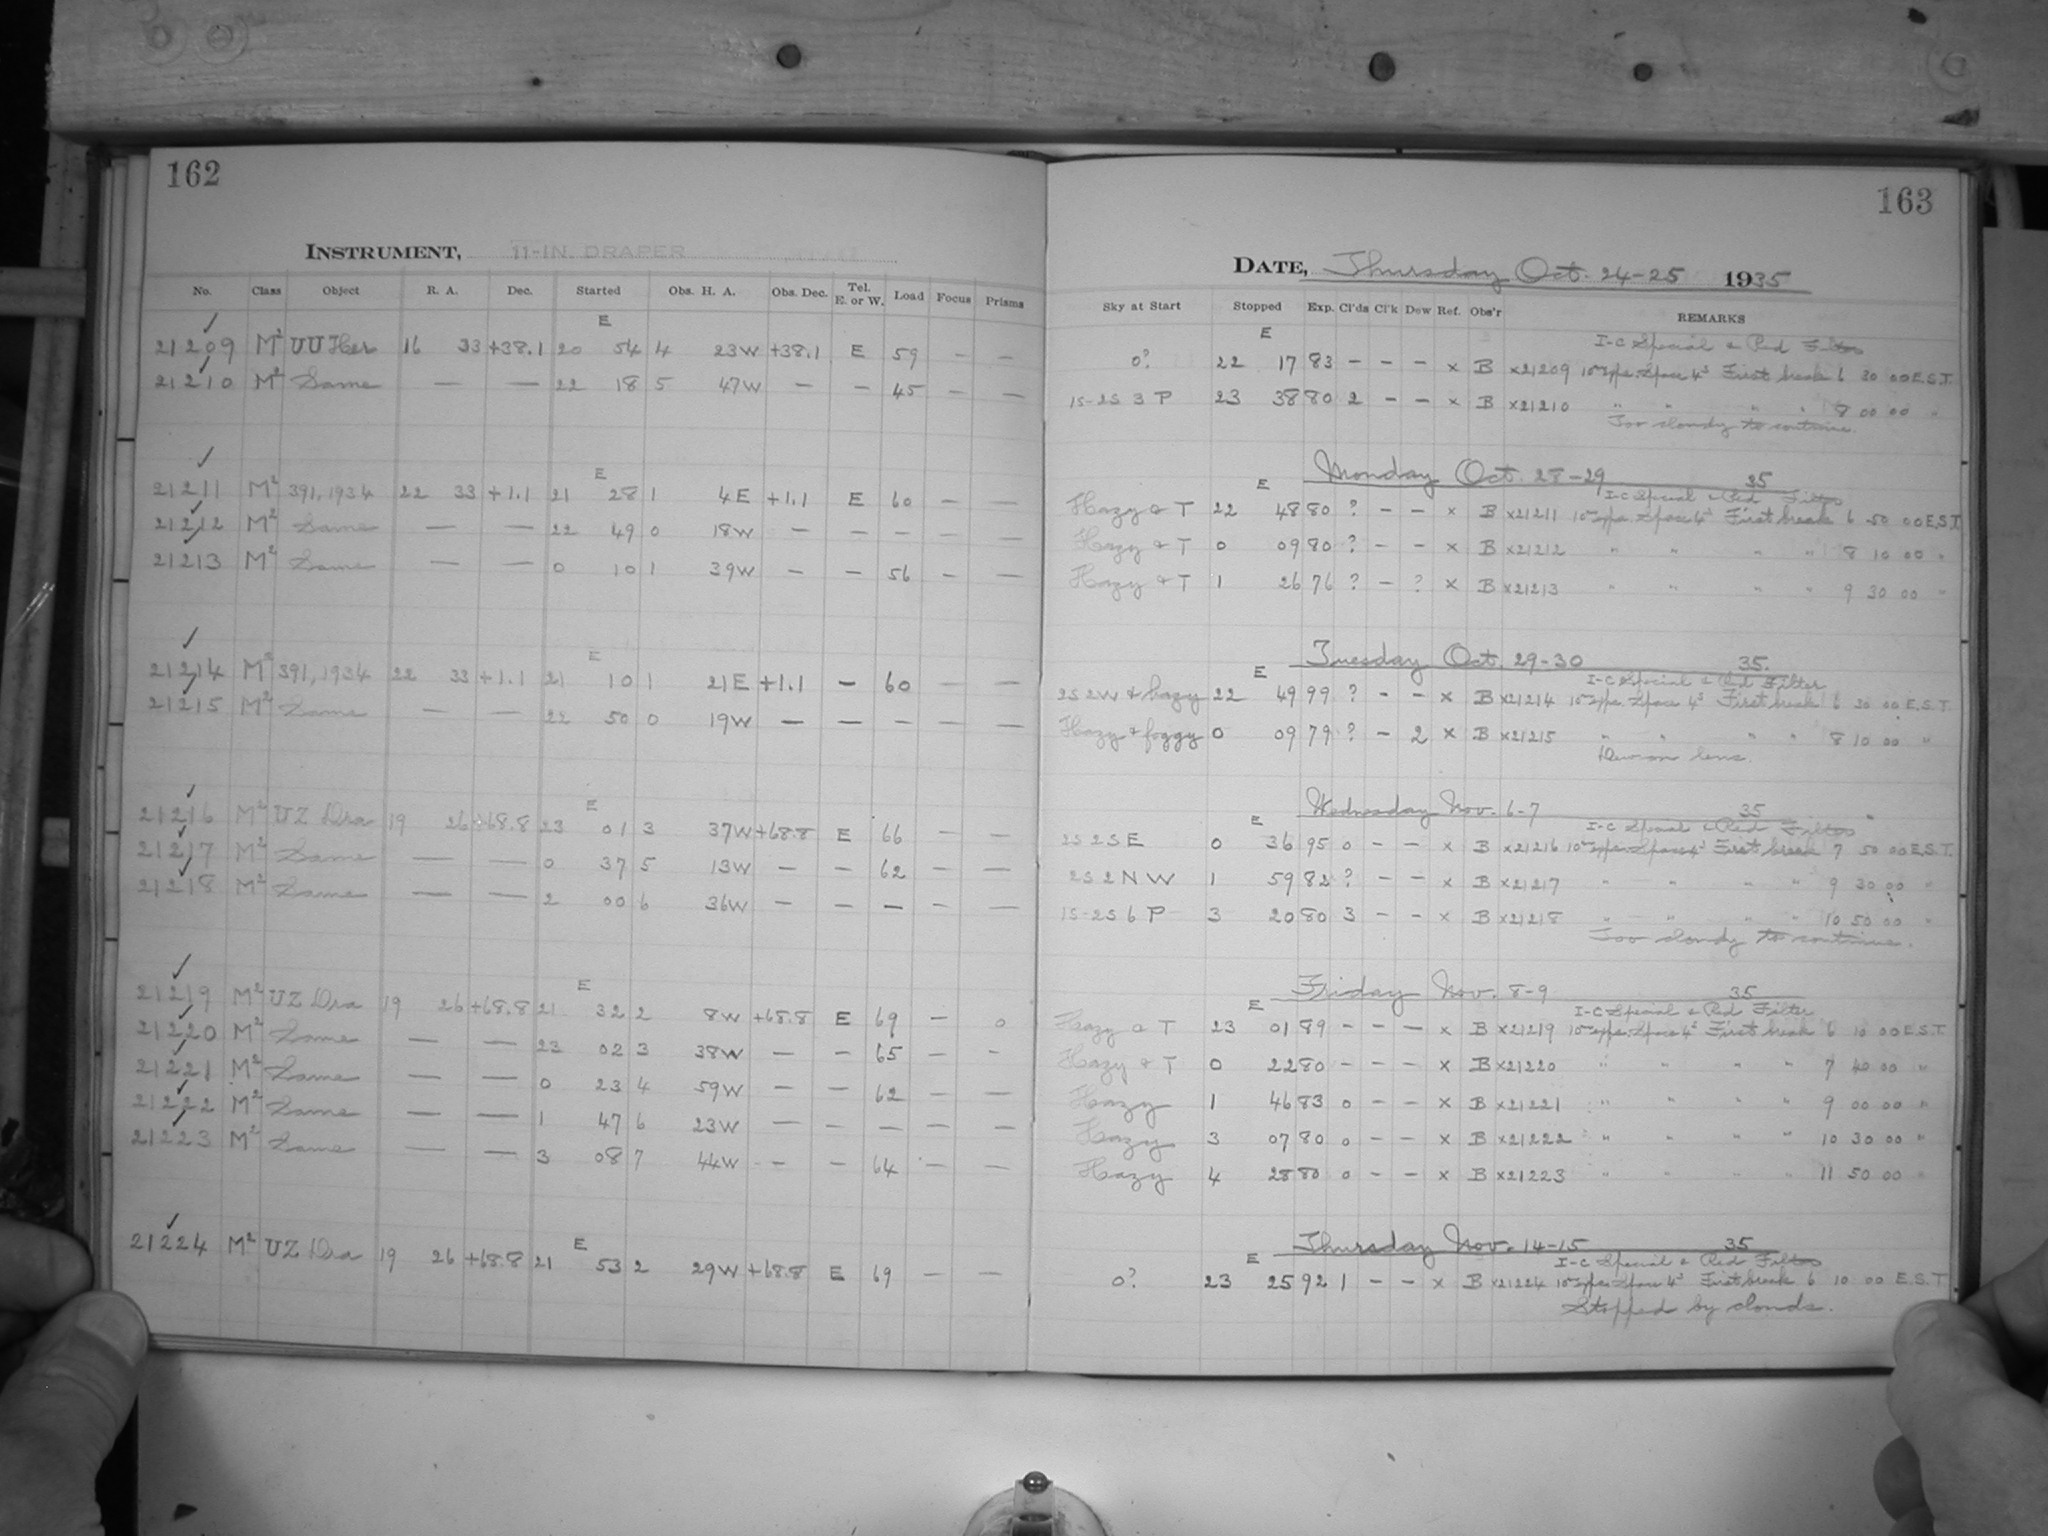 162
INSTRUMENT, 11-IN. DRAPER
No. Class Object R. A. Dec. Started Obs. H. A. Obs. Dec. Tel. E. or W. Load Focus Prisms
E
21209 M² UU Her 16 33 +38.1 20 54 4 23W +38.1 E 59 — —
21210 M² Same — — 22 18 5 47W — — 45 — —
E
21211 M² 391,1934 22 33 +1.1 21 28 1 4E +1.1 E 60 — —
21212 M² Same — — 22 49 0 18W — — — — —
21213 M² Same — — 0 10 1 39W — — 56 — —
E
21214 M² 391,1934 22 33 +1.1 21 10 1 21E +1.1 — 60 — —
21215 M² Same — — 22 50 0 19W — — — — —
E
21216 M² UZ Dra 19 26 +68.8 23 01 3 37W +68.8 E 66 — —
21217 M² Same — — 0 37 5 13W — — 62 — —
21218 M² Same — — 2 00 6 36W — — — — —
E
21219 M² UZ Dra 19 26 +68.8 21 32 2 8W +68.8 E 69 — 0
21220 M² Same — — 23 02 3 38W — — 65 — -
21221 M² Same — — 0 23 4 59W — — 62 — —
21222 M² Same — — 1 47 6 23W — — — — —
21223 M² Same — — 3 08 7 44W — — 64 — —
E
21224 M² UZ Dra 19 26 +68.8 21 53 2 29W +68.8 E 69 — —
163
DATE, Thursday Oct. 24-25 1935
Sky at Start Stopped Exp. Cl'ds Cl'k Dew Ref. Obs'r REMARKS
E I-C Special & Red Filter
0? 22 17 83 — — — x B x21209 Space 4ˢ First break 6 30 00 E.S.T.
1S-2S 3 P 23 38 80 2 — — x B x21210 " " " " 8 00 00 "
Too cloudy to continue.
Monday Oct. 28-29 35
E I-C Special & Red Filter
Hazy & T 22 48 80 ? — — x B x21211 Space 4ˢ First break 6 50 00 E.S.T.
Hazy & T 0 09 80 ? — — x B x21212 " " " " 8 10 00 "
Hazy & T 1 26 76 ? — ? x B x21213 " " " " 9 30 00 "
Tuesday Oct. 29-30 35.
E I-C Special & Red Filter
2S 2W & hazy 22 49 99 ? — — x B x21214 Space 4ˢ First break 6 30 00 E.S.T.
Hazy & foggy 0 09 79 ? — 2 x B x21215 " " " " 8 10 00 "
Dew on lens.
Wednesday Nov. 6-7 35
E I-C Special & Red Filter
2S 2S E 0 36 95 0 — — x B x21216 Space 4ˢ First break 7 50 00 E.S.T.
2S 2 N W 1 59 82 ? — — x B x21217 " " " " 9 30 00 "
1S-2S 6 P 3 20 80 3 — — x B x21218 " " " " 10 50 00 "
Too cloudy to continue.
Friday Nov. 8-9 35
E I-C Special & Red Filter
Hazy & T 23 01 89 — — — x B x21219 Space 4ˢ First break 6 10 00 E.S.T.
Hazy & T 0 22 80 — — — x B x21220 " " " " 7 40 00 "
Hazy 1 46 83 0 — — x B x21221 " " " " 9 00 00 "
Hazy 3 07 80 0 — — x B x21222 " " " " 10 30 00 "
Hazy 4 28 80 0 — — x B x21223 " " " " 11 50 00 "
Thursday Nov. 14-15 35
E I-C Special & Red Filter
0? 23 25 92 1 — — x B x21224 Space 4ˢ First break 6 10 00 E.S.T.
Stopped by clouds.